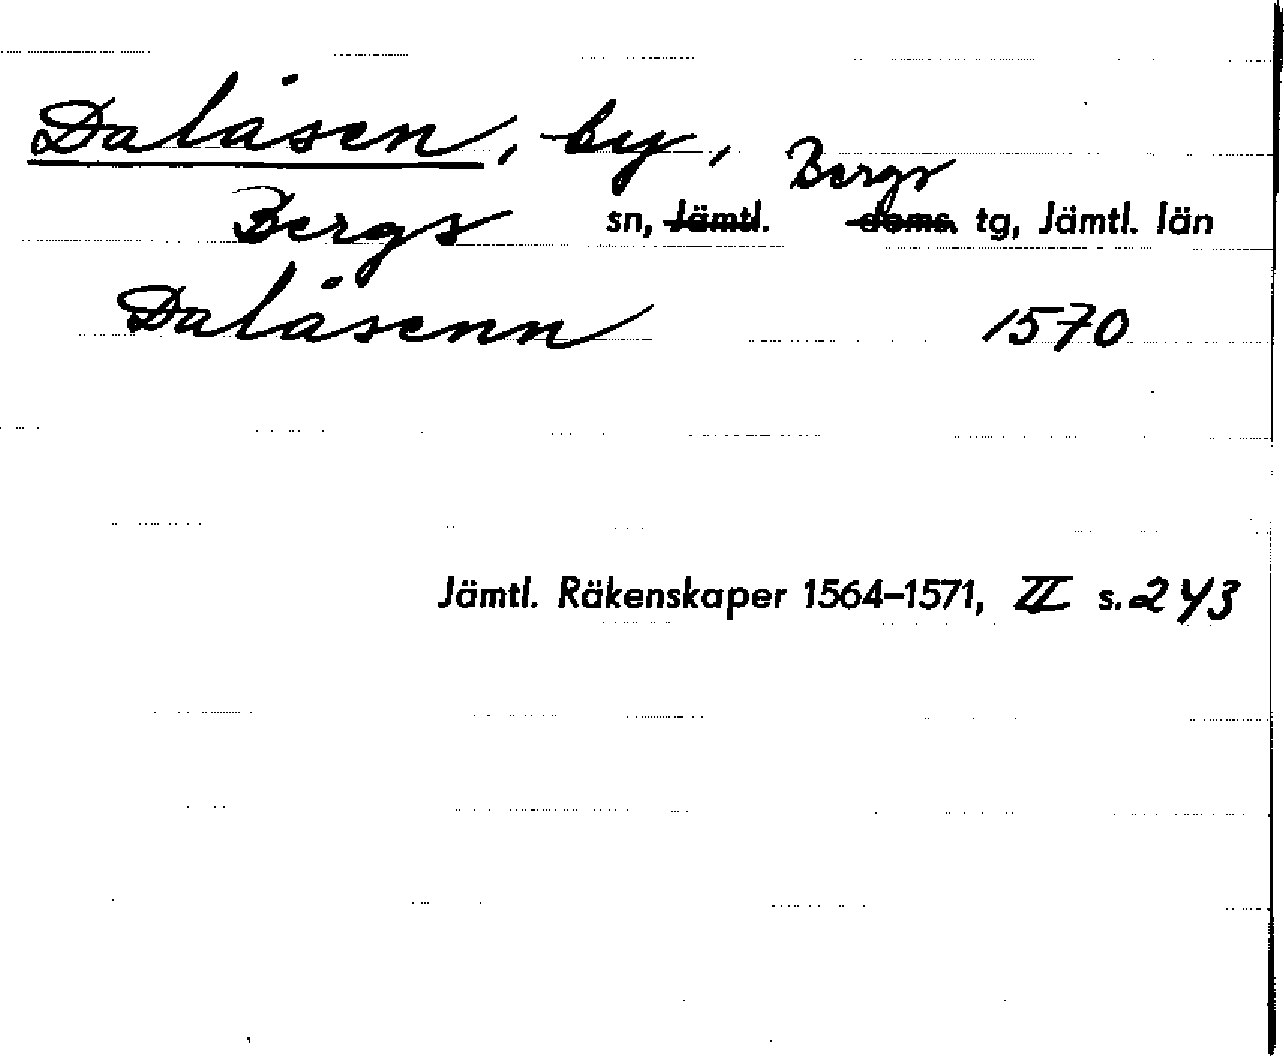 Dalåsen, by,
Bergs sn, Jämtl. Bergs doms. tg, Jämtl. län
Dalåsenn 1570
Jämtl. Räkenskaper 1564–1571, II s. 243